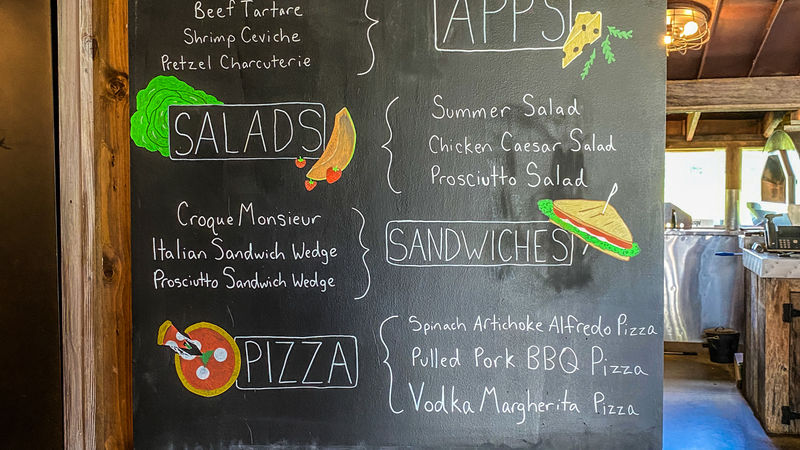 Beef Tartare
Shrimp Ceviche
Pretzel Charcuterie
APPS
SALADS
Summer Salad
Chicken Caesar Salad
Prosciutto Salad
Croque Monsieur
Italian Sandwich Wedge
Prosciutto Sandwich Wedge
SANDWICHES
PIZZA
Spinach Artichoke Alfredo Pizza
Pulled Pork BBQ Pizza
Vodka Margherita Pizza